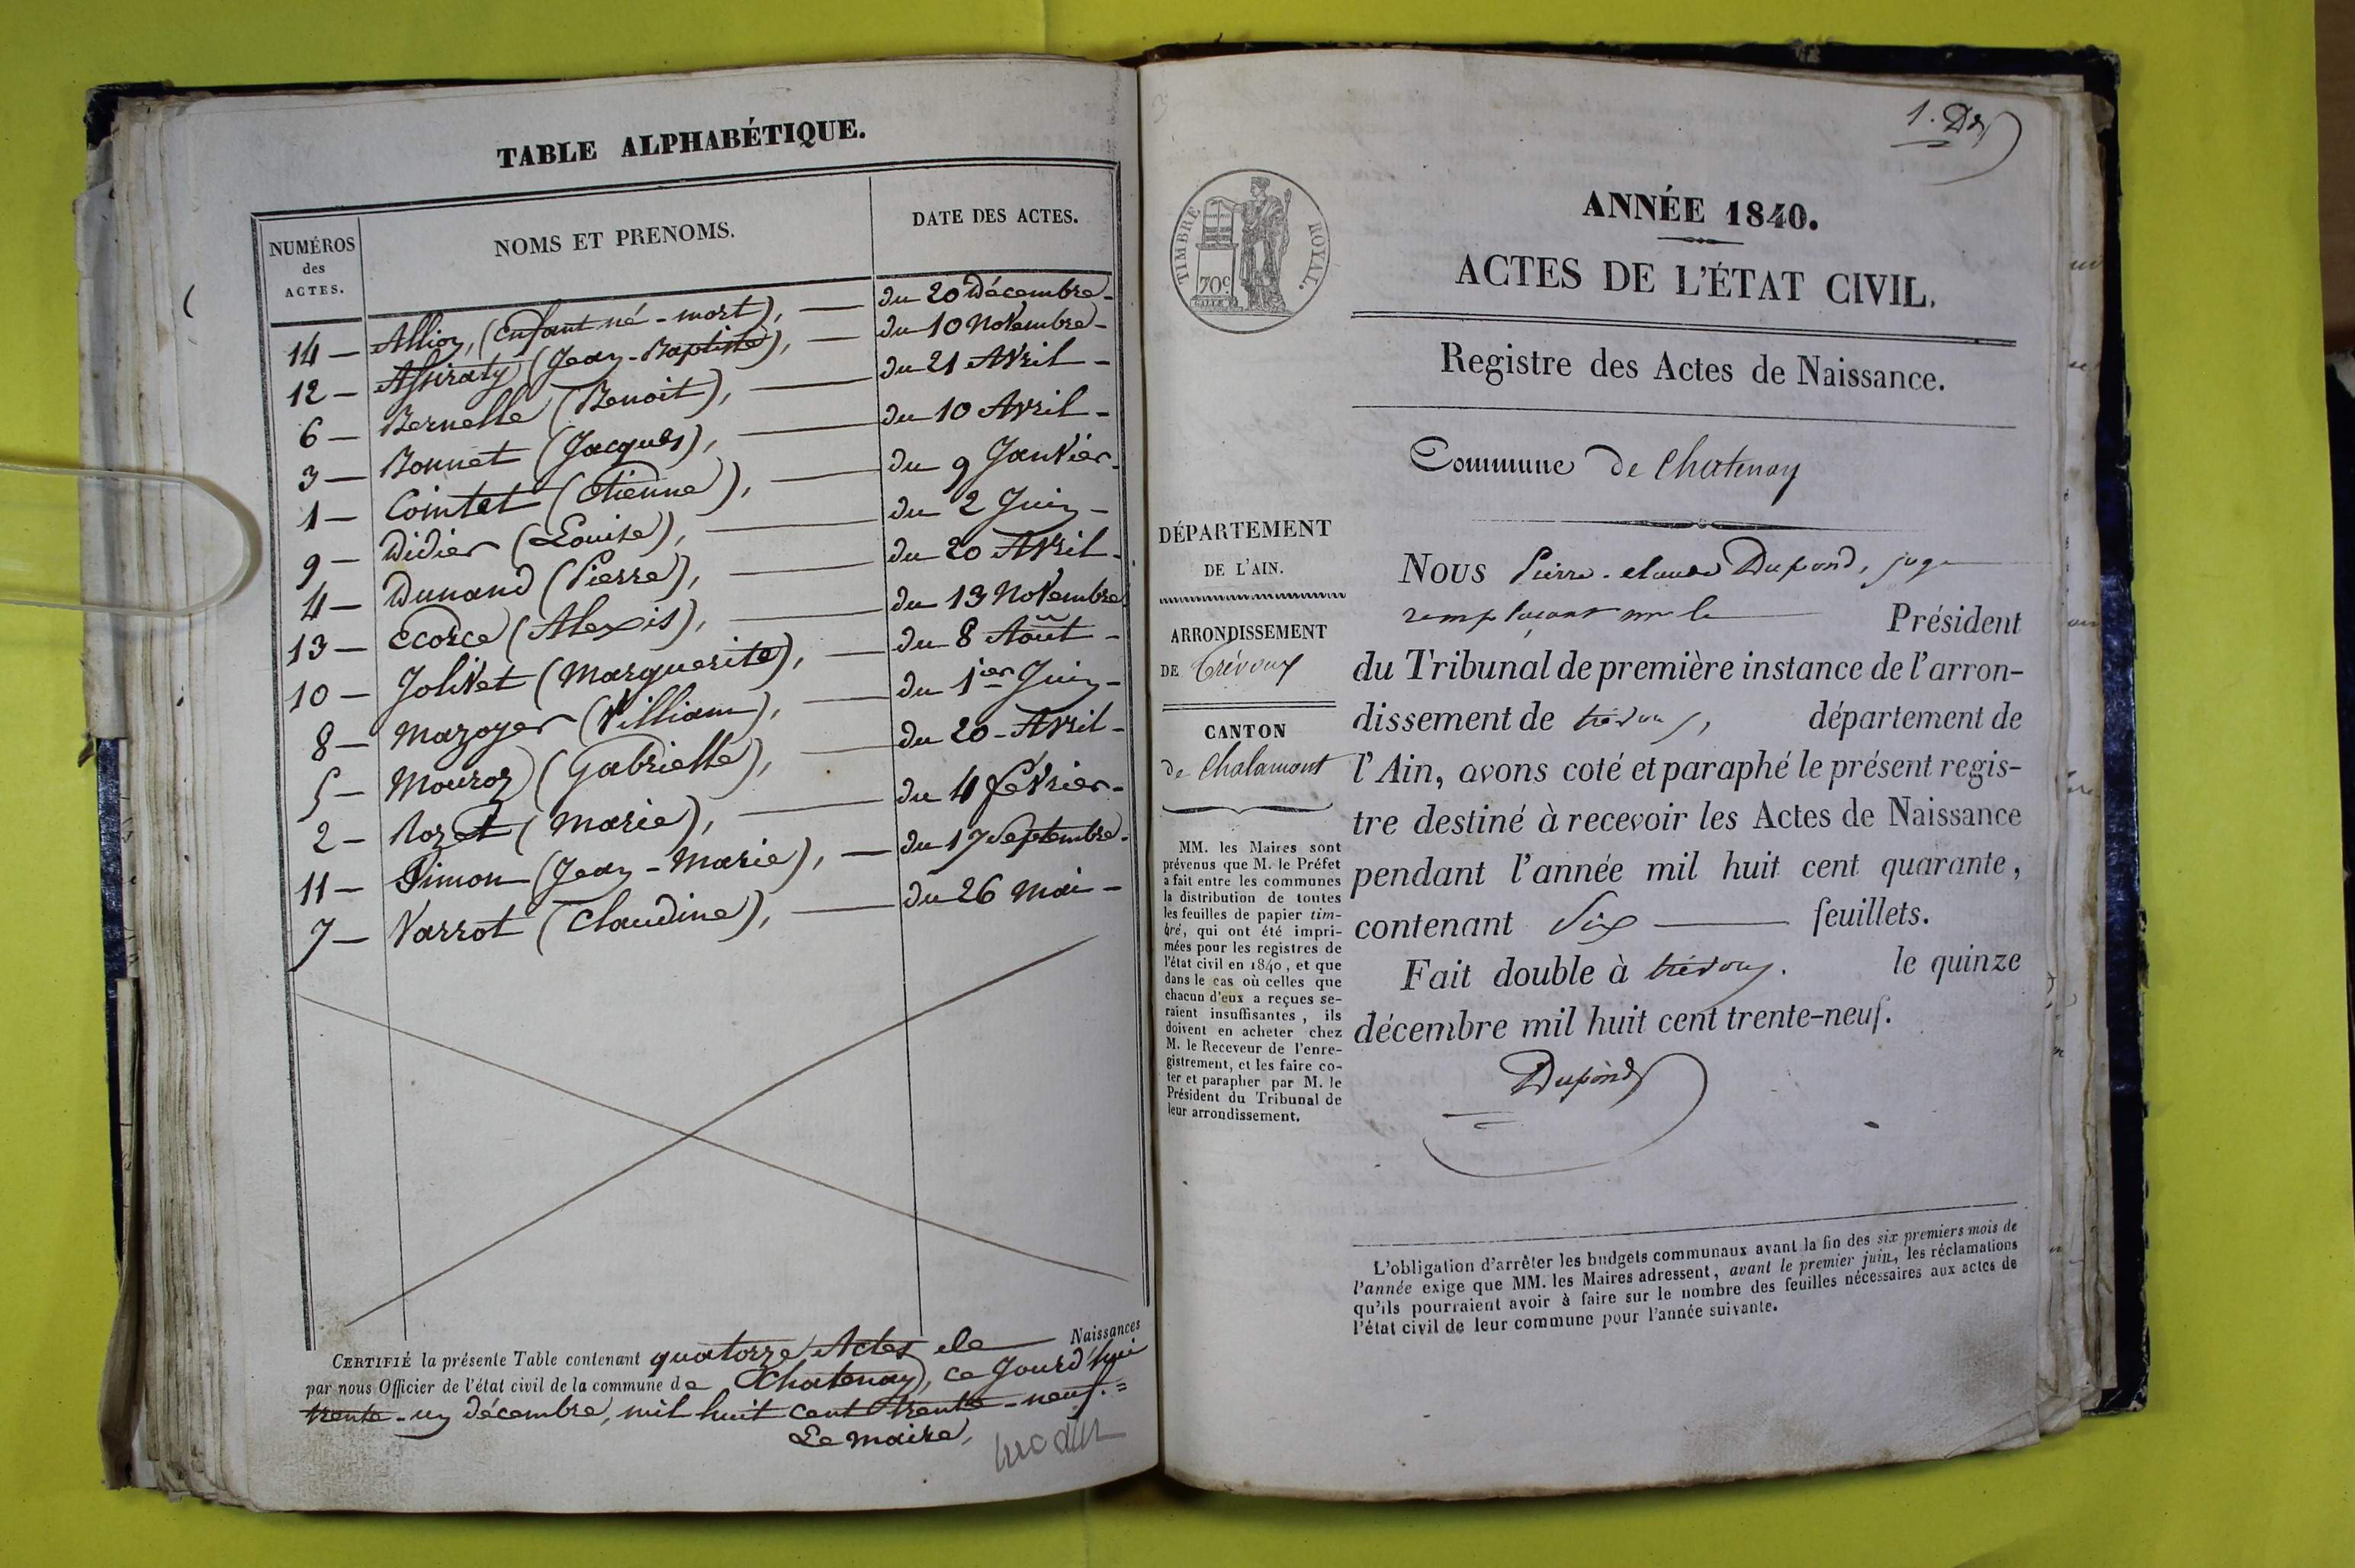 TABLE ALPHABÉTIQUE.
NUMÉROS
des
ACTES.
NOMS ET PRENOMS.
DATE DES ACTES.
14 — (Enfant né-mort), — du 20 Décembre -
12 — (Jean-Baptiste), — du 10 Novembre -
6 — Bernelle (Benoit), — du 21 Avril -
3 — Bonnet (Jacques), — du 10 Avril -
1 — Cointet (Etienne), — du 9 Janvier -
9 — Didier (Louise), — du 2 Juin -
4 — Dunand (Pierre), — du 20 Avril -
13 — Ecorce (Alexis), — du 13 Novembre
10 — Jolivet (Marguerite), — du 8 Août -
8 — Mazoyer (William), — du 1ier Juin -
5 — (Gabrielle), — du 20 - Avril -
2 — (Marie), — du 4 février -
11 — Simon (Jean-Marie), — du 17 Septembre -
7 — Varrot (Claudine), — du 26 Mai -
CERTIFIÉ la présente Table contenant quatorze Actes de — Naissances
par nous Officier de l'état civil de la commune de Chatenay, ce Jourd'hui
trente-un décembre, mil huit cent trente-neuf.=
Le Maire,
1.
TIMBRE ROYAL.
70c
ANNÉE 1840.
ACTES DE L'ÉTAT CIVIL.
Registre des Actes de Naissance.
Commune de Chatenay
DÉPARTEMENT
DE L'AIN.
ARRONDISSEMENT
DE Trévoux
CANTON
de Chalamont
MM. les Maires sont
prévenus que M. le Préfet
a fait entre les communes
la distribution de toutes
les feuilles de papier tim-
bré, qui ont été impri-
mées pour les registres de
l'état civil en 1840, et que
dans le cas où celles que
chacun d'eux a reçues se-
raient insuffisantes, ils
doivent en acheter chez
M. le Receveur de l'enre-
gistrement, et les faire co-
ter et parapher par M. le
Président du Tribunal de
leur arrondissement.
Nous Pierre-claude Dupond, juge
remplaçant mr le — Président
du Tribunal de première instance de l'arron-
dissement de trévoux, département de
l'Ain, avons coté et paraphé le présent regis-
tre destiné à recevoir les Actes de Naissance
pendant l'année mil huit cent quarante,
contenant Six — feuillets.
Fait double à trévoux. le quinze
décembre mil huit cent trente-neuf.
Dupond
L'obligation d'arrêter les budgets communaux avant la fin des six premiers mois de
l'année exige que MM. les Maires adressent, avant le premier juin, les réclamations
qu'ils pourraient avoir à faire sur le nombre des feuilles nécessaires aux actes de
l'état civil de leur commune pour l'année suivante.